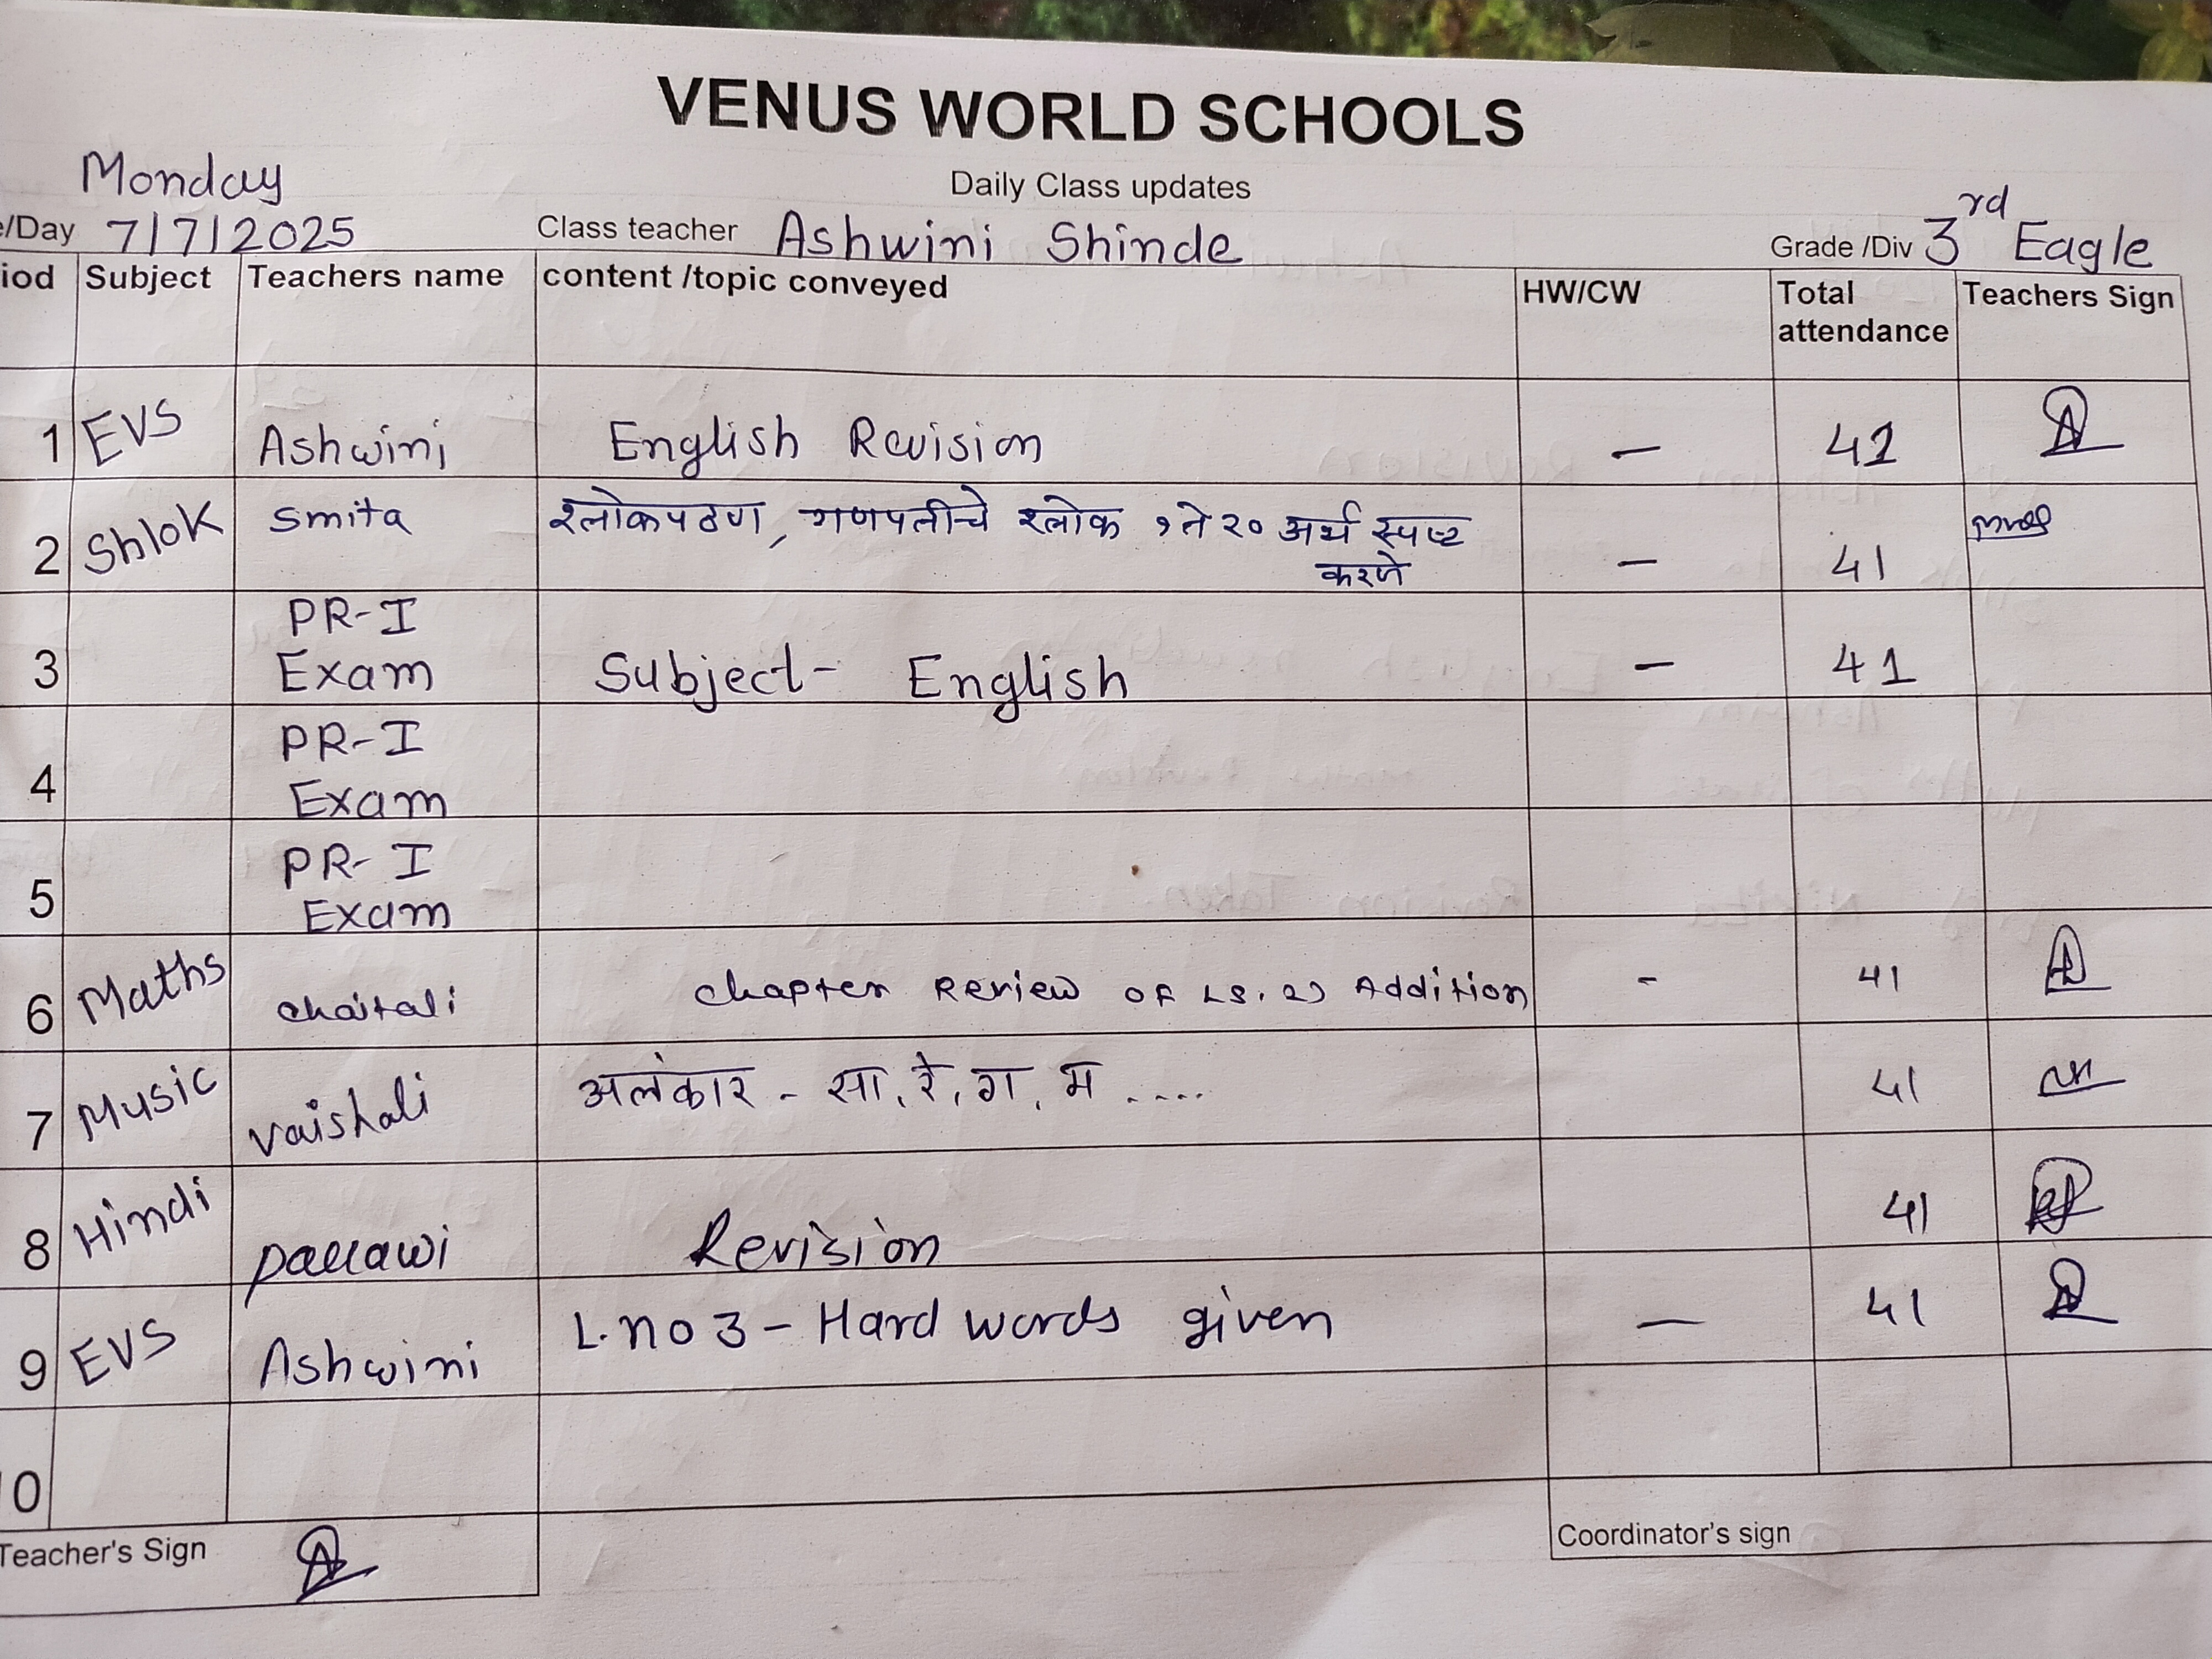 VENUS WORLD SCHOOLS
Daily Class updates
Monday
/Day 7/7/2025 Class teacher Ashwini Shinde Grade /Div 3rd Eagle
iod Subject Teachers name content /topic conveyed HW/CW Total attendance Teachers Sign
1 EVS Ashwini English Revision — 41
2 Shlok Smita श्लोकपठण, गणपतीचे श्लोक १ ते २० अर्थ स्पष्ट करणे — 41
3 PR-I Exam Subject- English — 41
4 PR-I Exam
5 PR-I Exam
6 Maths Chaitali Chapter Review OF LS. 2) Addition - 41
7 Music Vaishali अलंकार - सा, रे, ग, म ..... 41
8 Hindi Pallawi Revision 41
9 EVS Ashwini L.no 3 - Hard words given — 41
0
Teacher's Sign Coordinator's sign